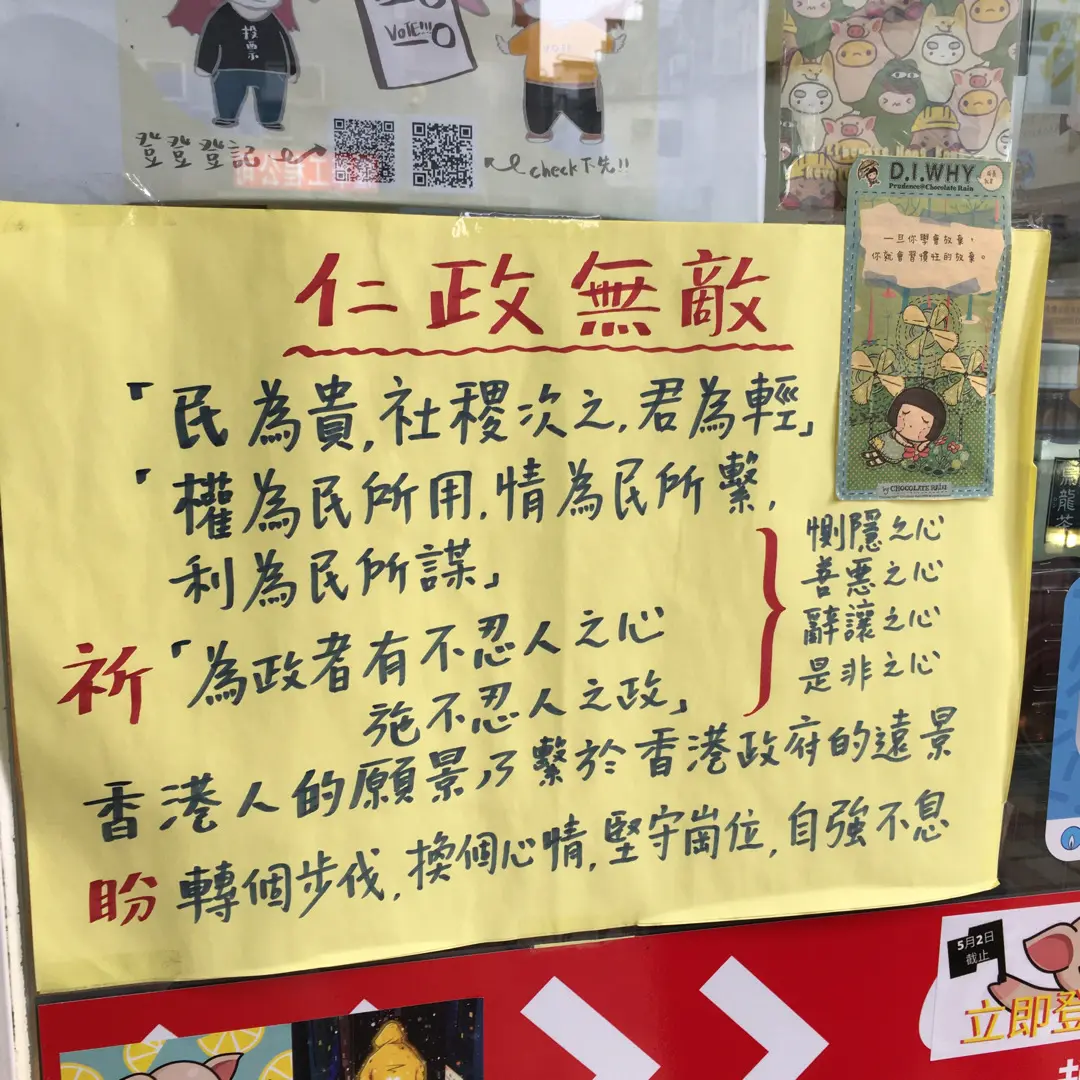 投票示
VOTE!!!
登登登記
check下先!!
工程公司
D.I.WHY
Prudence@Chocolate Rain
一旦你學會放棄，
你就會習慣性的放棄。
by CHOCOLATE RAIN
仁政無敵
「民為貴,社稷次之,君為輕」
「權為民所用,情為民所繫,
利為民所謀」
祈「為政者有不忍人之心
施不忍人之政」
惻隱之心
善惡之心
辭讓之心
是非之心
香港人的願景乃繫於香港政府的遠景
盼 轉個步伐,換個心情,堅守崗位,自強不息
烏龍茶
5月2日
截止
立即登